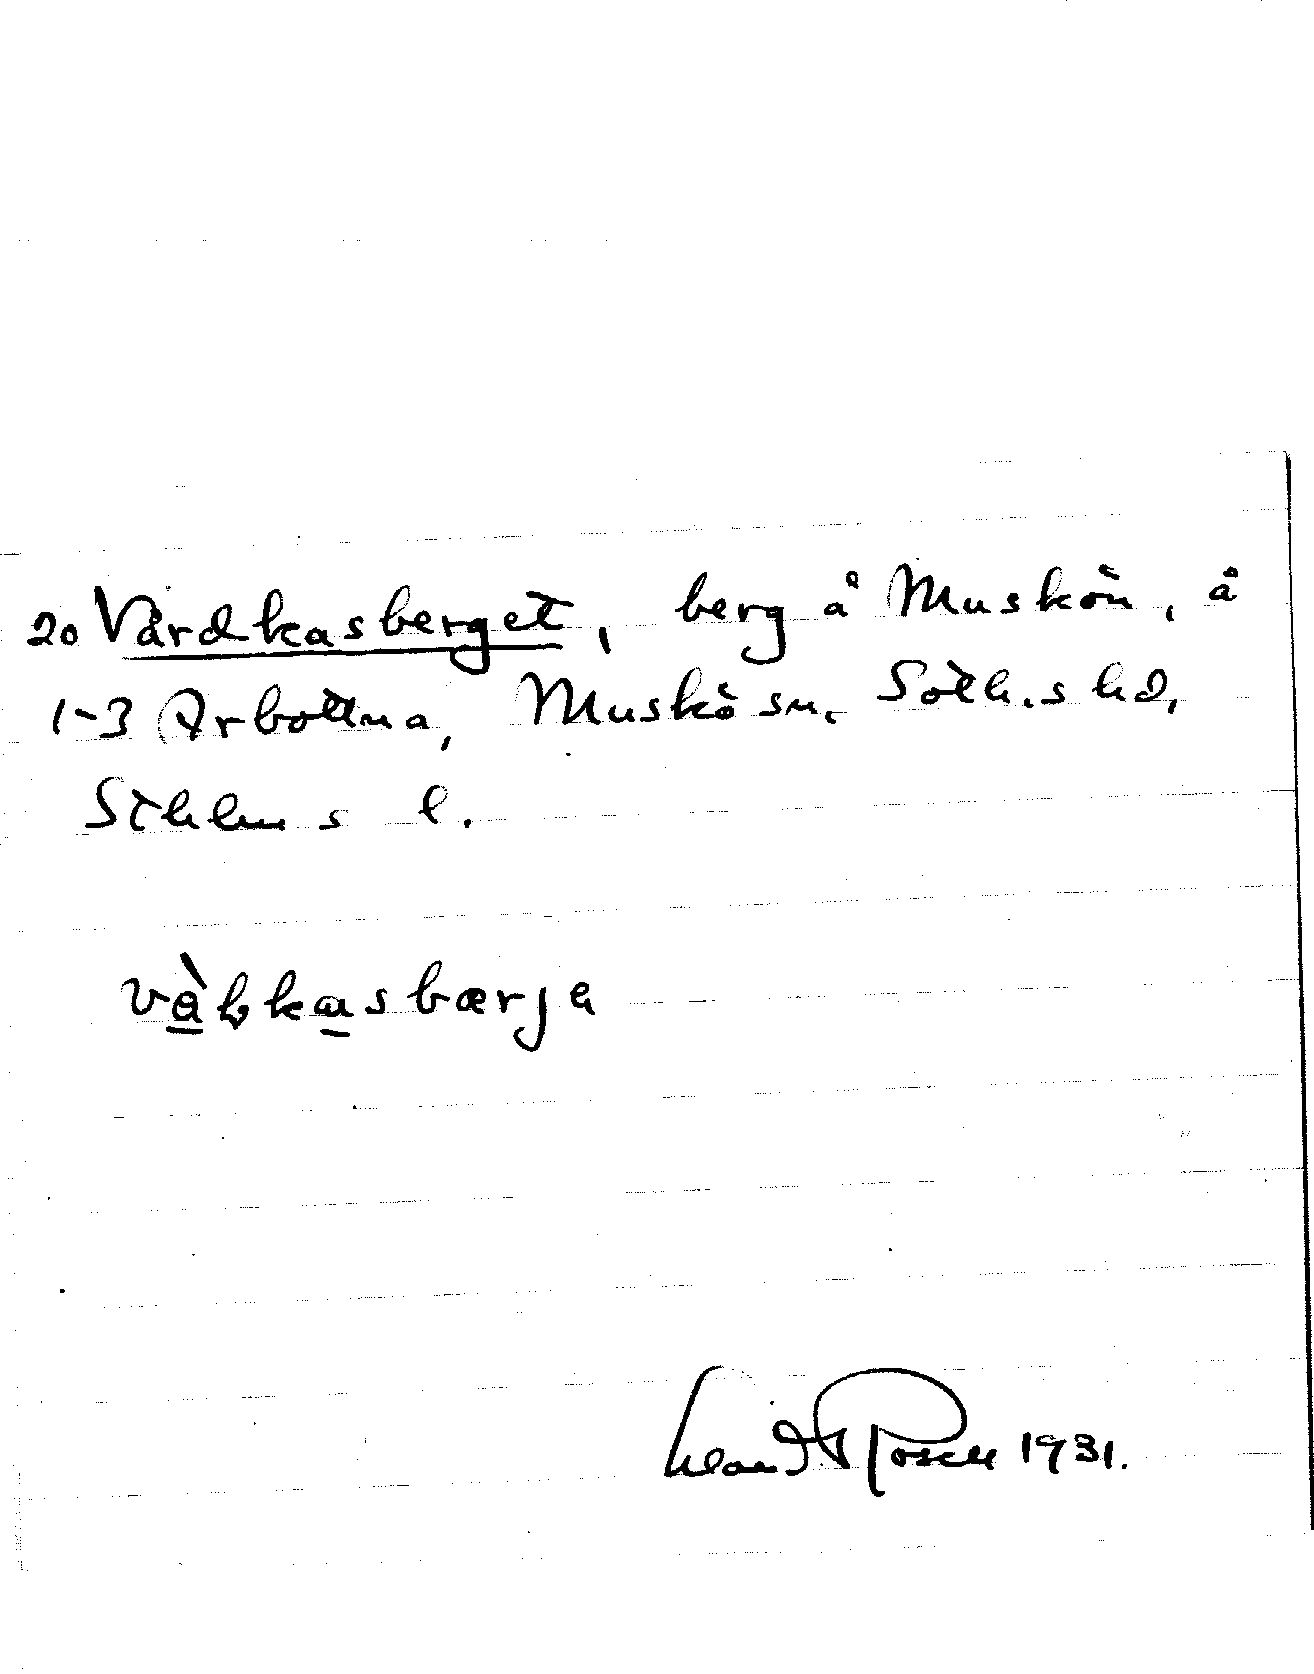 20 Vårdkasberget, berg å Muskön, å
1-3 Arbottna, Muskö sn, Soth.s hd,
Sthlms l.
vàƚkasbærja
1931.